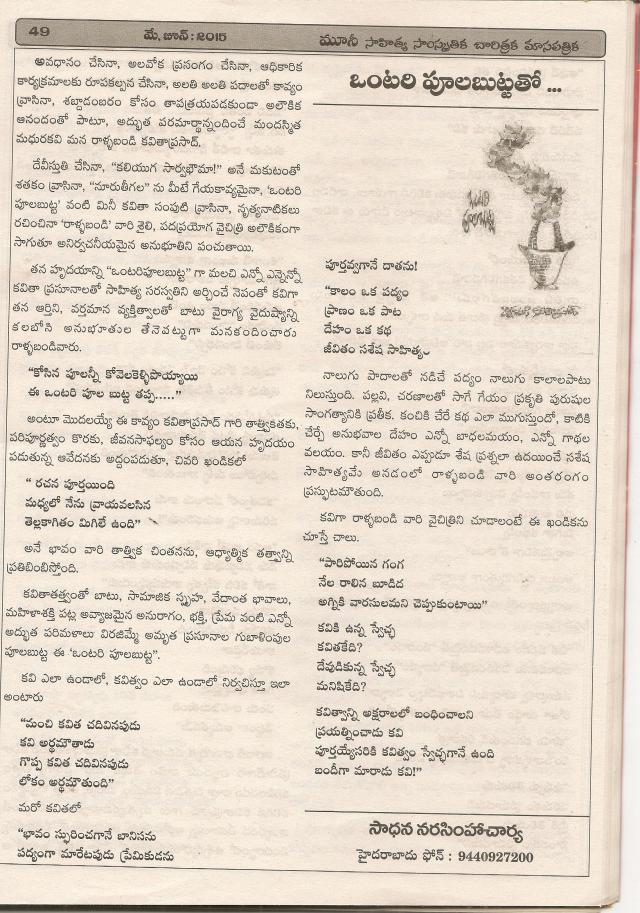 49
మే, జూన్ : 2015
మూసీ సాహిత్య సాంస్కృతిక చారిత్రక మాసపత్రిక
అవధానం చేసినా, అలవోక ప్రసంగం చేసినా, ఆధికారిక
కార్యక్రమాలకు రూపకల్పన చేసినా, అలతి అలతి పదాలతో కావ్యం
వ్రాసినా, శబ్దాడంబరం కోసం తాపత్రయపడకుండా అలౌకిక
ఆనందంతో పాటూ, అద్భుత పరమార్థాన్నందించే మందస్మిత
మధురకవి మన రాళ్ళబండి కవితాప్రసాద్.
దేవీస్తుతి చేసినా, "కలియుగ సార్వభౌమా!" అనే మకుటంతో
శతకం వ్రాసినా, "సూరుతీగల" ను మీటే గేయకావ్యమైనా, 'ఒంటరి
పూలబుట్ట' వంటి మినీ కవితా సంపుటి వ్రాసినా, నృత్యనాటికలు
రచించినా 'రాళ్ళబండి' వారి శైలి, పదప్రయోగ వైచిత్రి అలౌకికంగా
సాగుతూ అనిర్వచనీయమైన అనుభూతిని పంచుతాయి.
తన హృదయాన్ని "ఒంటరిపూలబుట్ట" గా మలచి ఎన్నో ఎన్నెన్నో
కవితా ప్రసూనాలతో సాహిత్య సరస్వతిని అర్చించే నెపంతో కవిగా
తన ఆర్తిని, వర్తమాన వ్యక్తిత్వాలతో బాటు వైరాగ్య వైదుష్యాన్ని
కలబోసి అనుభూతుల తేనెపట్టుగా మనకందించారు
రాళ్ళబండివారు.
"కోసిన పూలన్నీ కోవెలకెళ్ళిపోయ్యాయి
ఈ ఒంటరి పూల బుట్ట తప్ప....."
అంటూ మొదలయ్యే ఈ కావ్యం కవితాప్రసాద్ గారి తాత్త్వికతకు,
పరిపూర్ణత్వం కొరకు, జీవనసాఫల్యం కోసం ఆయన హృదయం
పడుతున్న ఆవేదనకు అద్దంపడుతూ, చివరి ఖండికలో
" రచన పూర్తయింది
మధ్యలో నేను వ్రాయవలసిన
తెల్లకాగితం మిగిలే ఉంది"
అనే భావం వారి తాత్విక చింతనను, ఆధ్యాత్మిక తత్త్వాన్ని
ప్రతిబింబిస్తోంది.
కవితాతత్త్వంతో బాటు, సామాజిక స్పృహ, వేదాంత భావాలు,
మహిళాశక్తి పట్ల అవ్యాజమైన అనురాగం, భక్తి, ప్రేమ వంటి ఎన్నో
అద్భుత పరిమళాలు విరజిమ్మే అమృత ప్రసూనాల గుబాళింపుల
పూలబుట్ట ఈ 'ఒంటరి పూలబుట్ట".
కవి ఎలా ఉండాలో, కవిత్వం ఎలా ఉండాలో నిర్వచిస్తూ ఇలా
అంటారు
"మంచి కవిత చదివినపుడు
కవి అర్థమౌతాడు
గొప్ప కవిత చదివినపుడు
లోకం అర్థమౌతుంది"
మరో కవితలో
"భావం స్ఫురించగానే బానిసను
పద్యంగా మారేటపుడు ప్రేమికుడను
ఒంటరి పూలబుట్టతో ...
ఒంటరి
పూలబుట్ట
పూర్తవ్వగానే దాతను!
"కాలం ఒక పద్యం
ప్రాణం ఒక పాట
దేహం ఒక కథ
జీవితం సశేష సాహిత్యం
నాలుగు పాదాలతో నడిచే పద్యం నాలుగు కాలాలపాటు
నిలుస్తుంది. పల్లవి, చరణాలతో సాగే గేయం ప్రకృతి పురుషుల
సాంగత్యానికి ప్రతీక. కంచికి చేరే కథ ఎలా ముగుస్తుందో, కాటికి
చేర్చే అనుభవాల దేహం ఎన్నో బాధలమయం, ఎన్నో గాథల
వలయం. కానీ జీవితం ఎప్పుడూ శేష ప్రశ్నలా ఉదయించే సశేష
సాహిత్యమే అనడంలో రాళ్ళబండి వారి అంతరంగం
ప్రస్ఫుటమౌతుంది.
కవిగా రాళ్ళబండి వారి వైచిత్రిని చూడాలంటే ఈ ఖండికను
చూస్తే చాలు.
"పారిపోయిన గంగ
నేల రాలిన బూడిద
అగ్నికి వారసులమని చెప్పుకుంటాయి"
కవికి ఉన్న స్వేచ్ఛ
కవితకేది?
దేవుడికున్న స్వేచ్ఛ
మనిషికేది?
కవిత్వాన్ని అక్షరాలలో బంధించాలని
ప్రయత్నించాడు కవి
పూర్తయ్యేసరికి కవిత్వం స్వేచ్ఛగానే ఉంది
బందీగా మారాడు కవి!"
సాధన నరసింహాచార్య
హైదరాబాదు ఫోన్ : 9440927200